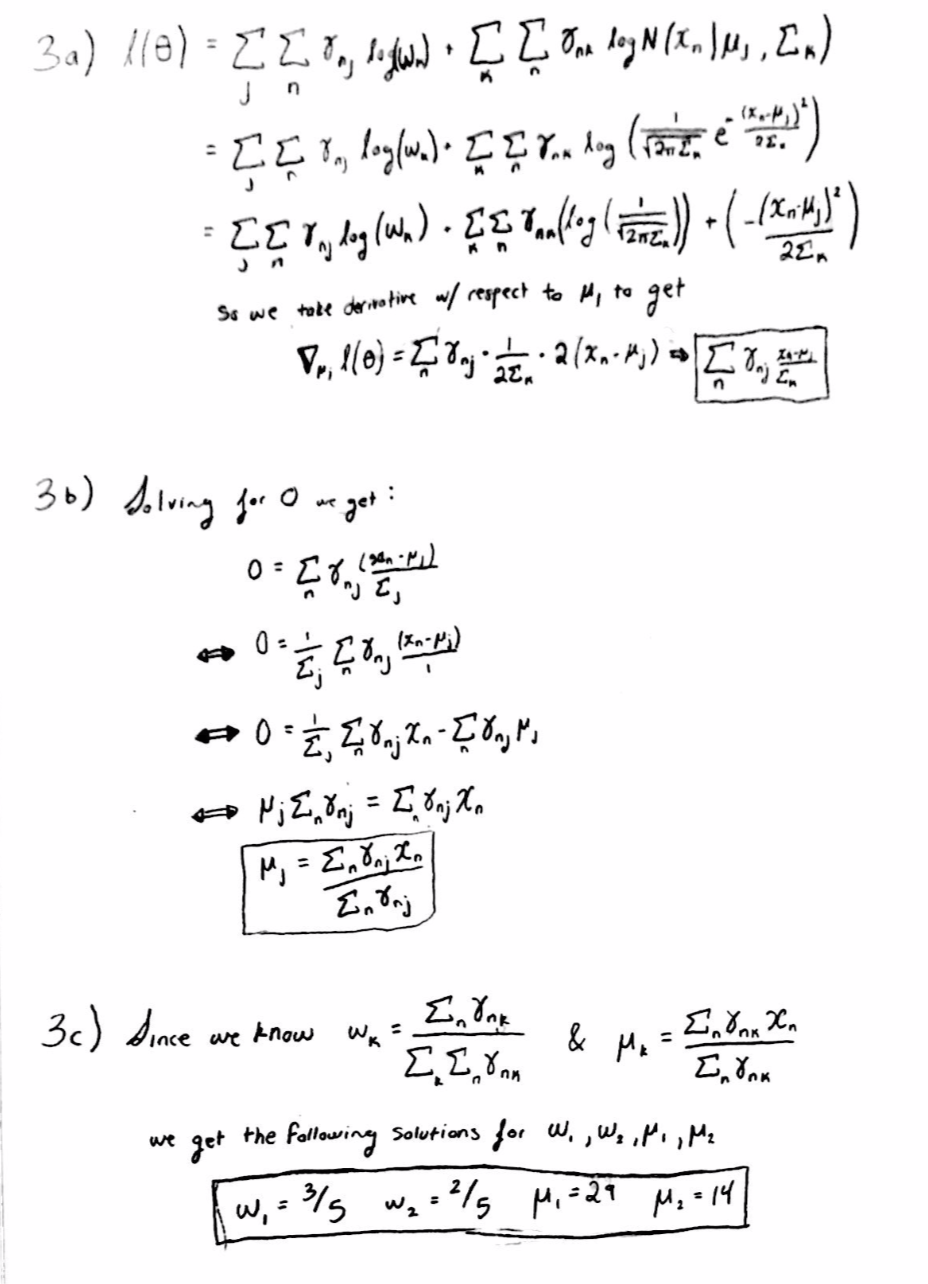 3a) l(θ) = Σ_j Σ_n γ_nj log(w_k) + Σ_k Σ_n γ_nk log N(x_n|μ_j, Σ_k)
= Σ_j Σ_n γ_nj log(w_k) + Σ_k Σ_n γ_nk log (1/√(2πΣ_k) e^(-(x_n-μ_j)²/2Σ_k))
= Σ_j Σ_n γ_nj log(w_k) + Σ_k Σ_n γ_nk (log(1/√(2πΣ_k))) + (-(x_n-μ_j)²/2Σ_k)
So we take derivative w/ respect to μ_j to get
∇_μj l(θ) = Σ_n γ_nj · 1/2Σ_k · 2(x_n-μ_j) ⇒ Σ_n γ_nj (x_n-μ_j)/Σ_k
3b) Solving for 0 we get :
0 = Σ_n γ_nj (x_n-μ_j)/Σ_j
⇔ 0 = 1/Σ_j Σ_n γ_nj (x_n-μ_j)/1
⇔ 0 = 1/Σ_j Σ_n γ_nj x_n - Σ_n γ_nj μ_j
⇔ μ_j Σ_n γ_nj = Σ_n γ_nj x_n
μ_j = Σ_n γ_nj x_n / Σ_n γ_nj
3c) Since we know w_k = Σ_n γ_nk / Σ_k Σ_n γ_nk & μ_k = Σ_n γ_nk x_n / Σ_n γ_nk
we get the following solutions for w₁, w₂, μ₁, μ₂
w₁ = 3/5 w₂ = 2/5 μ₁ = 29 μ₂ = 14